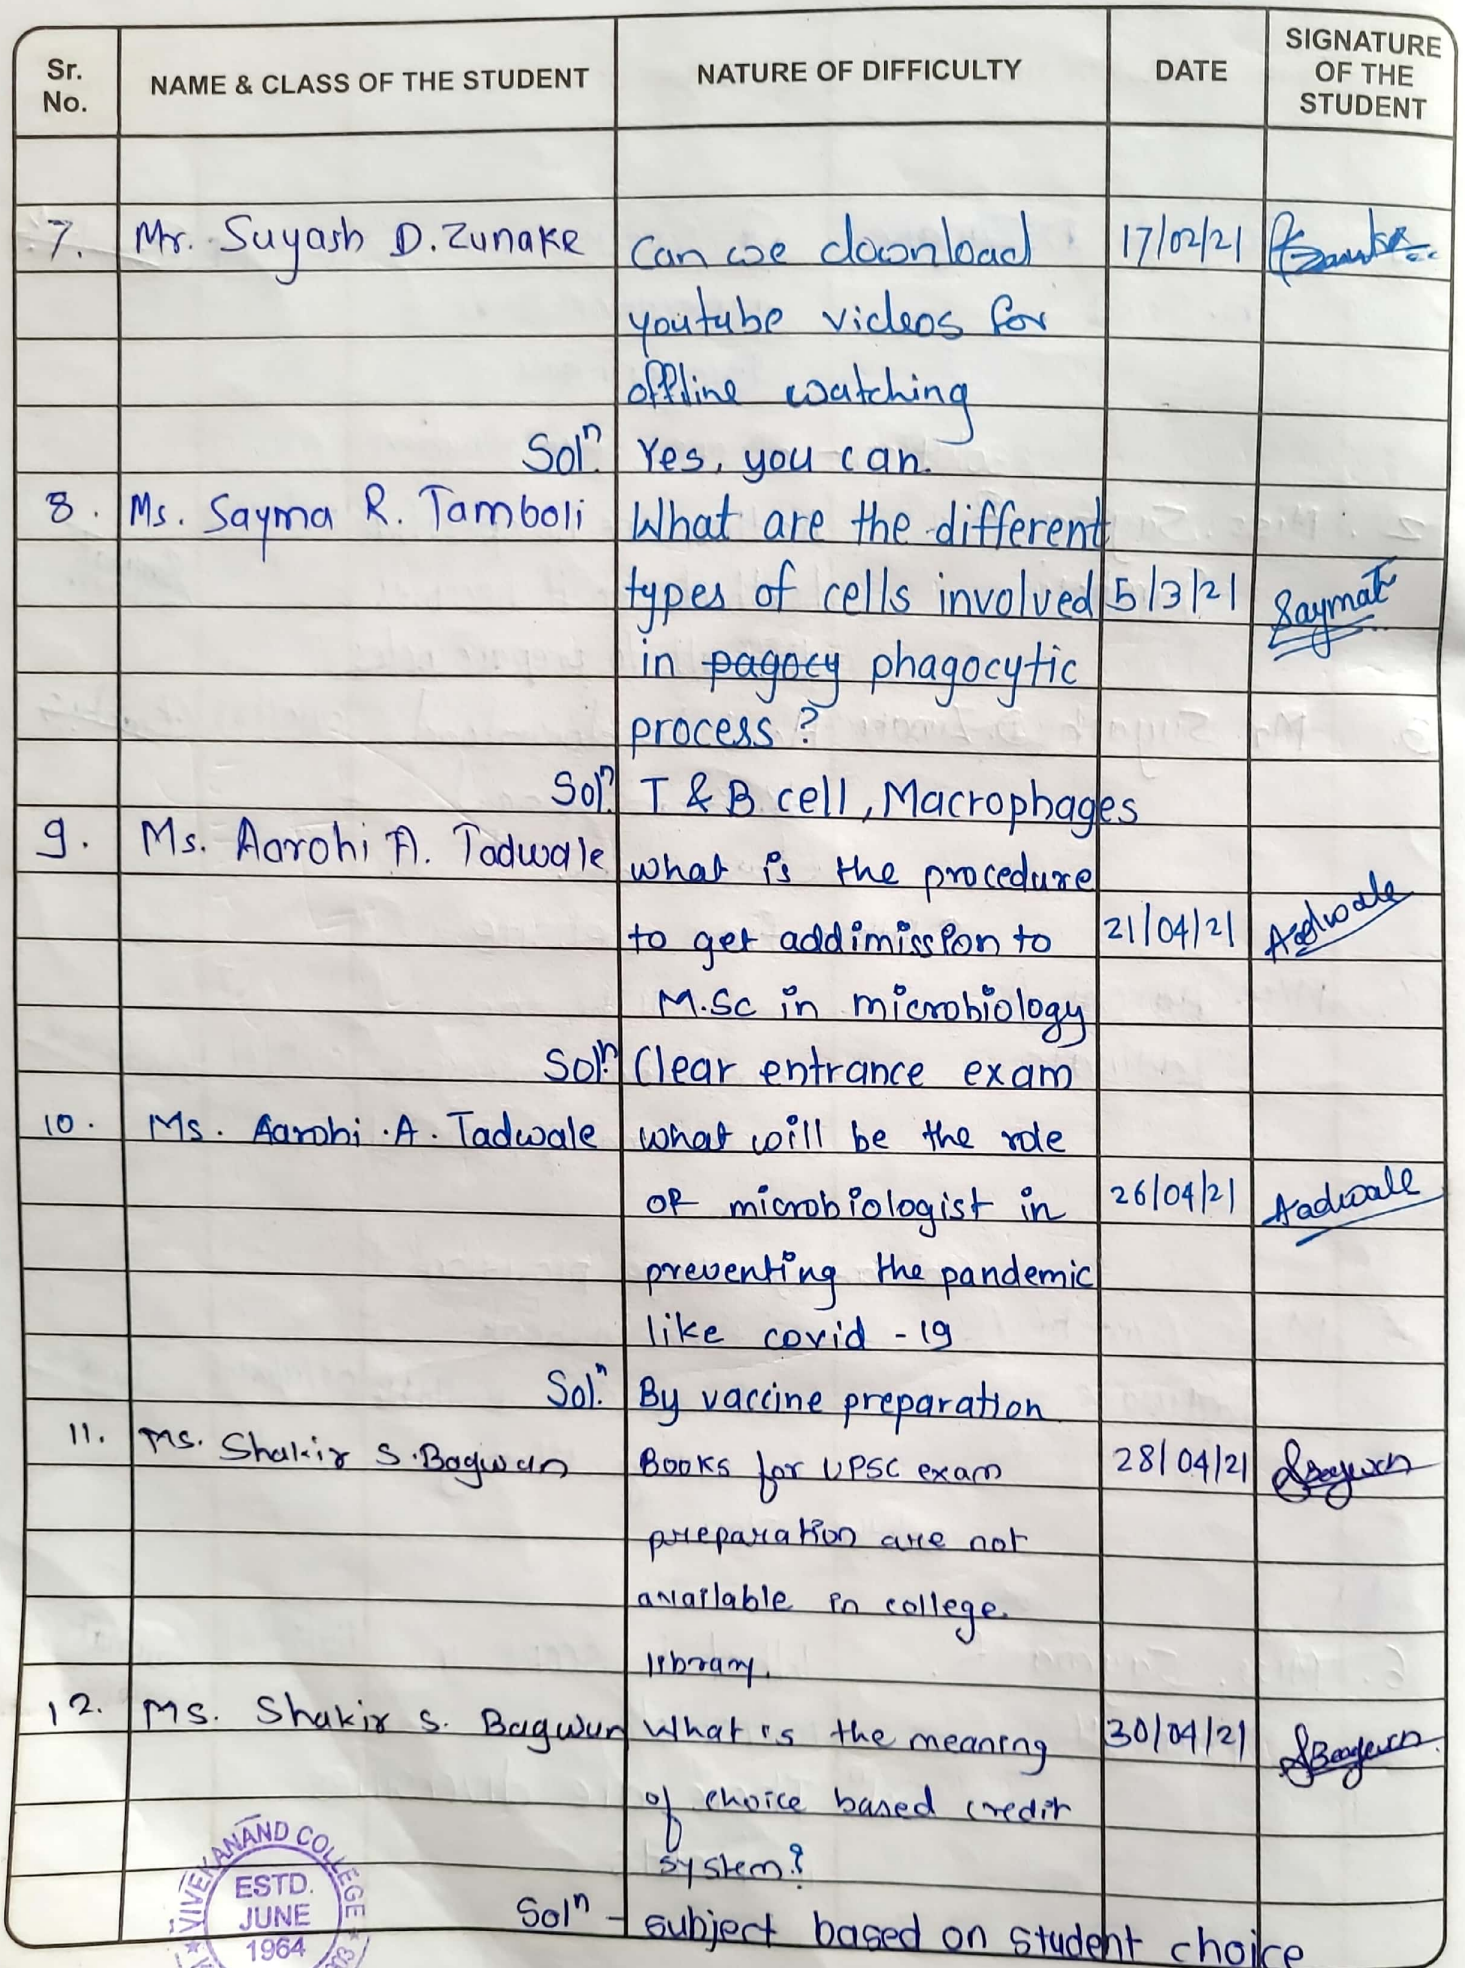 Sr. No.
NAME & CLASS OF THE STUDENT
NATURE OF DIFFICULTY
DATE
SIGNATURE OF THE STUDENT
7. Mr. Suyash D. Zunake Can we download 17/02/21
youtube videos for
offline watching
Solⁿ. Yes, you can.
8. Ms. Sayma R. Tamboli What are the different
types of cells involved 5/3/21 SaymaT
in pagocy phagocytic
process?
Solⁿ. T & B cell, Macrophages
9. Ms. Aarohi A. Tadwale what is the procedure
to get addimission to 21/04/21 Aadwale
M.Sc in microbiology
Solⁿ. Clear entrance exam
10. Ms. Aarohi .A. Tadwale what will be the role
of microbiologist in 26/04/21 Aadwale
preventing the pandemic
like covid - 19
Solⁿ. By vaccine preparation
11. Ms. Shakir S. Bagwan Books for UPSC exam 28/04/21 SBagwan
preparation are not
available in college.
library.
12. Ms. Shakir S. Bagwan What is the meaning 30/04/21 SBagwan
of choice based credit
system?
Solⁿ - subject based on student choice
VIVEKANAND COLLEGE
ESTD.
JUNE
1964